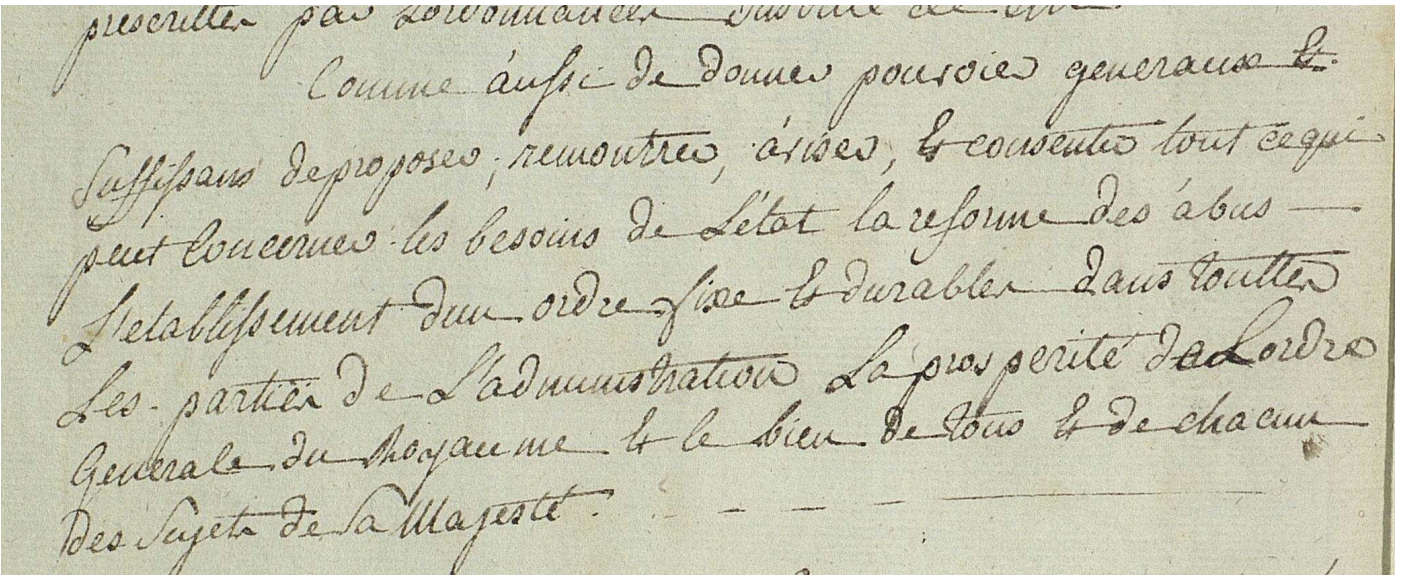 prescrittes par Lordonnances
Comme áussi de donner pouvoirs generaux &
Suffisans de proposer, remontrer, áviser, & consentir tout ce qui
peut Concerner les besoins de L'état la reforme des ábus —
L'etablissement dun ordre fixe & durables dans touttes
Les parties de L'administration La prosperité de Lordre
Generale du Royaume & le bien de tous & de chacun
des Sujets de Sa Majesté. - - -